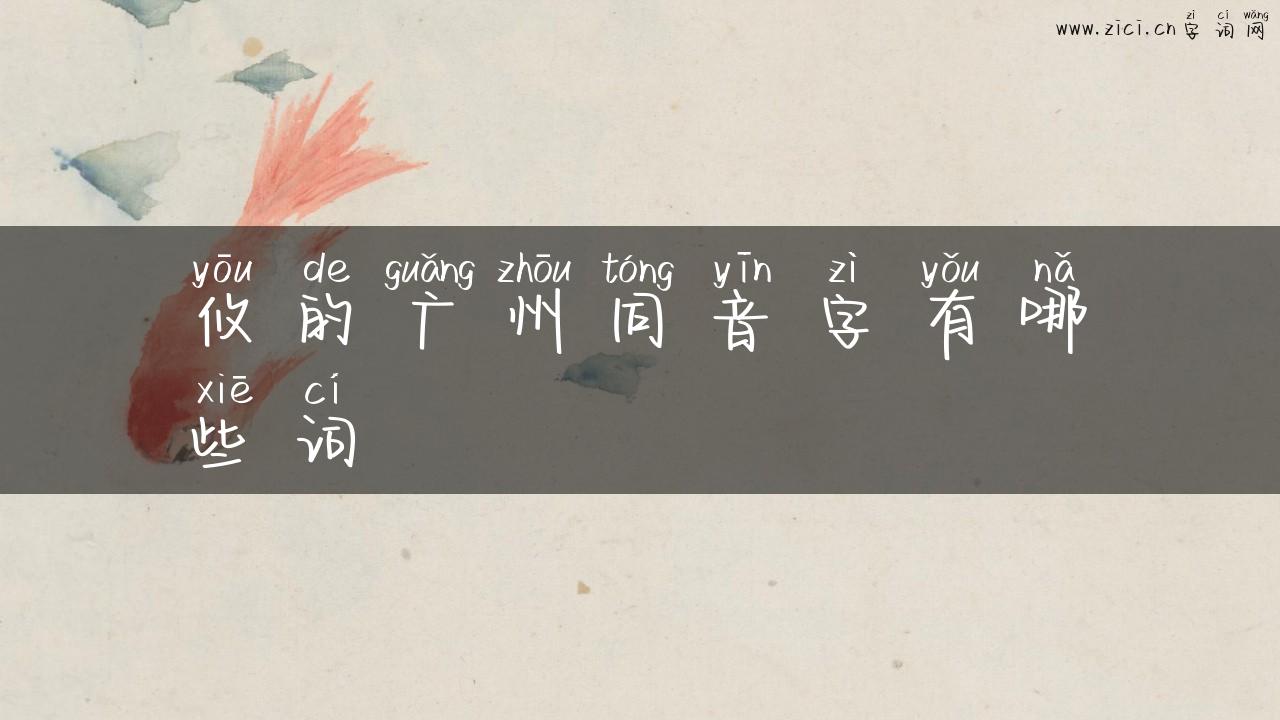 zì cí wǎng
www.zici.cn 字词网
yōu de guǎng zhōu tóng yīn zì yǒu nǎ
攸的广州同音字有哪
xiē cí
些词